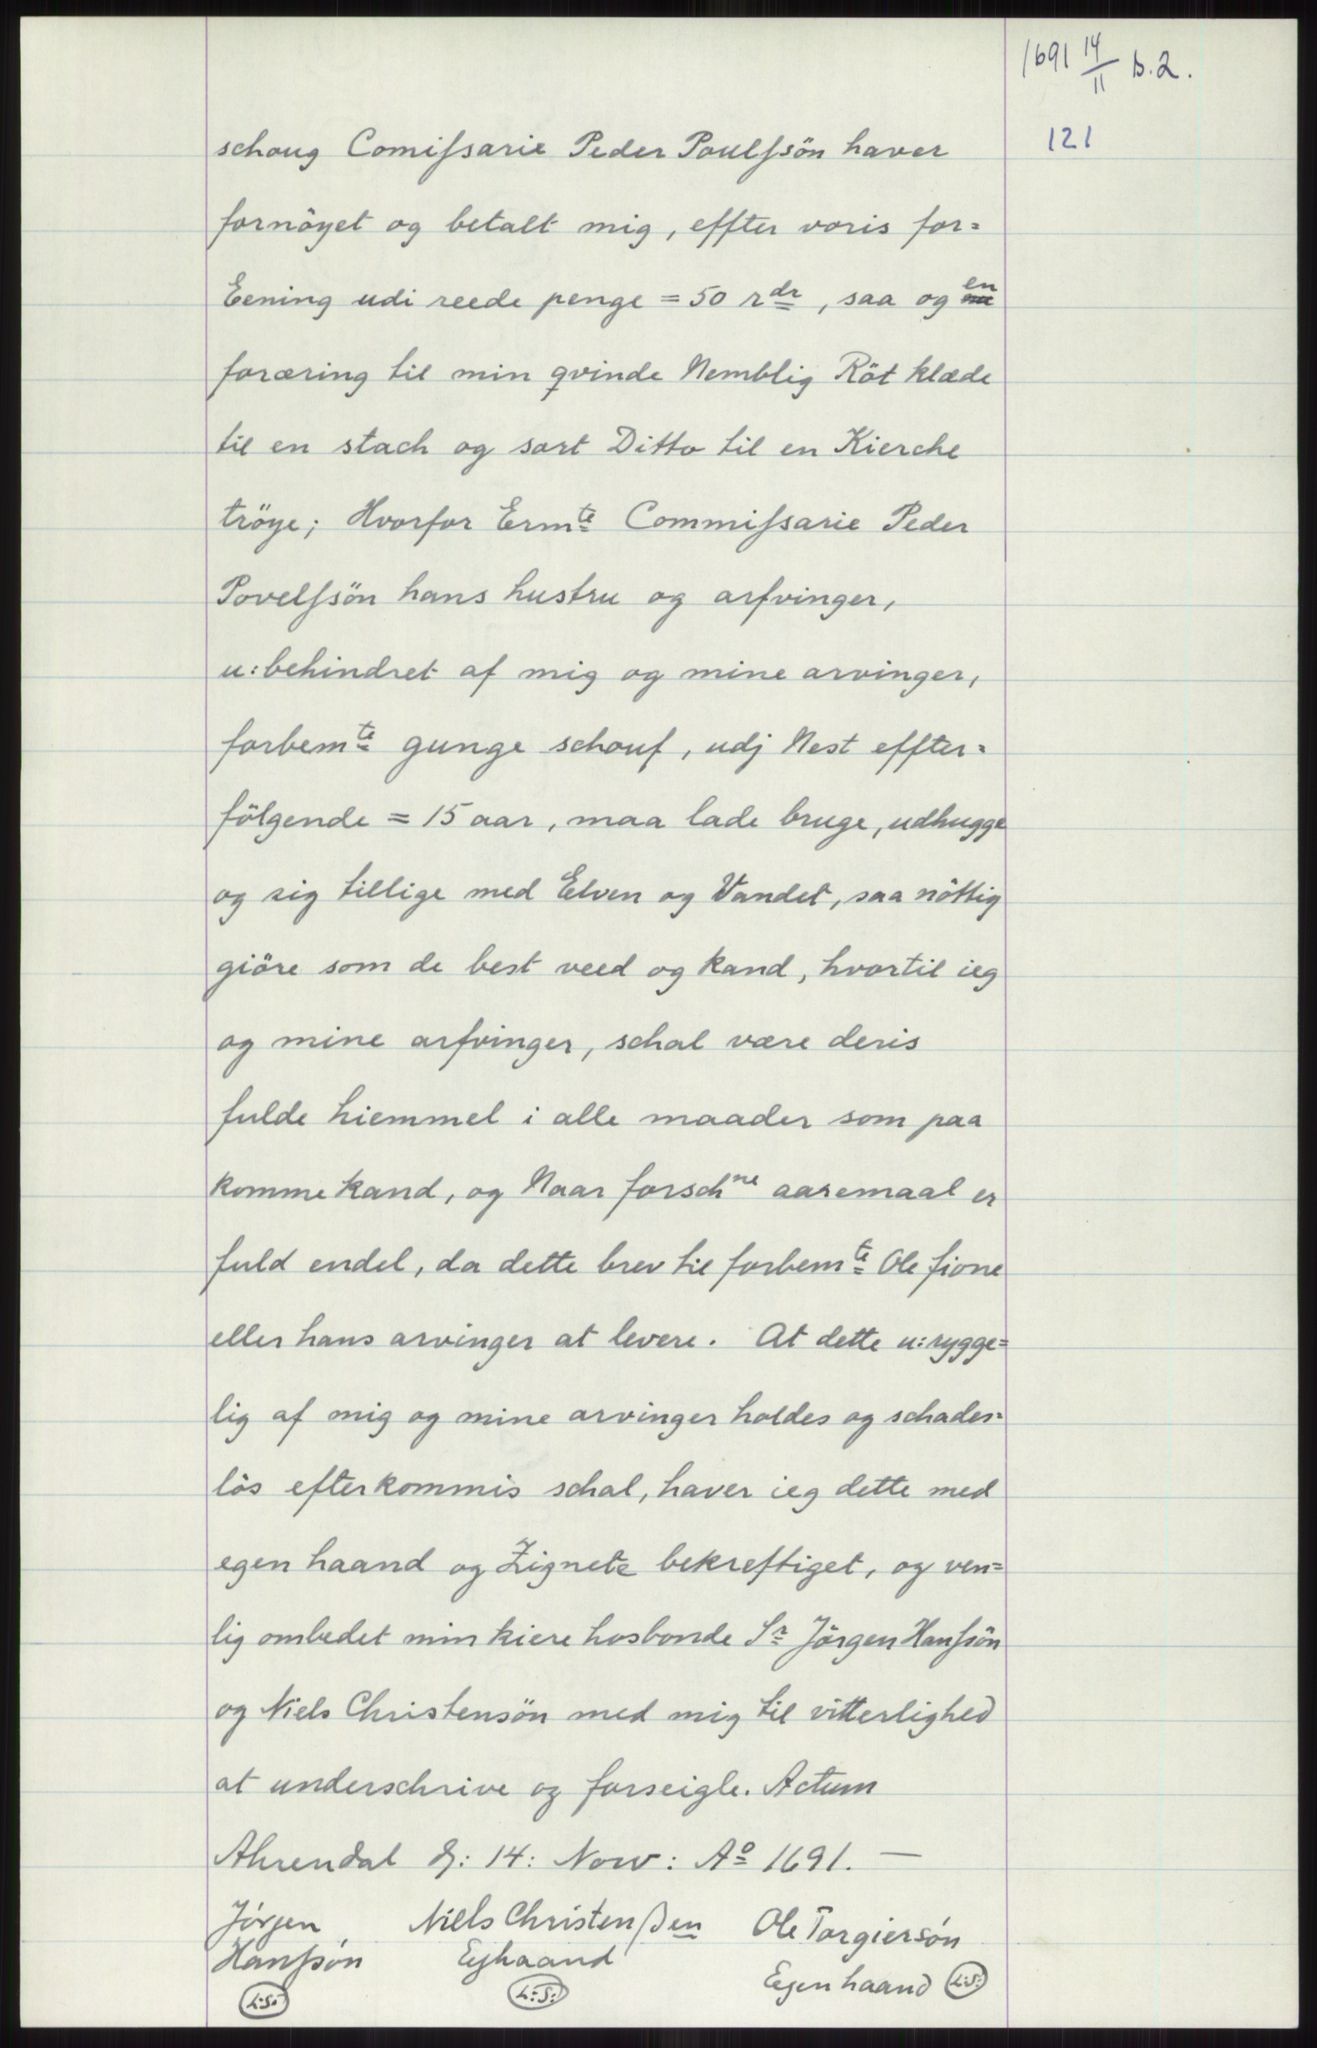 1691 14/11 s. 2.
121
schoug Comiſsarie Peder Poulſsön haver
fornöyet og betalt mig, effter voris for=
Eening udi reede penge = 50 rdr, saa og en
foræring til min qvinde Nemblig Röt klæde
til en stach og sort Ditto til en Kierche
tröye; Hvorfor Ermte Commiſsarie Peder
Povelſsön hans hustru og arfvinger,
u:behindret af mig og mine arvinger,
forbemte gunge schouf, udj Nest effter=
fölgende = 15 aar, maa lade bruge, udhugge
og sig tillige med Elven og Vandet, saa nöttig
giöre som de best veed og kand, hvortil ieg
og mine arfvinger, schal være deris
fulde hiemmel i alle maader som paa
komme kand, og Naar forschne aaremaal er
fuld endel, da dette brev til forbemte Ole fione
eller hans arvinger at levere. At dette u:rygge=
lig af mig og mine arvinger holdes og schades=
lös efterkommis schal, haver ieg dette med
egen haand og Zignete bekreftiget, og ven=
lig ombedet min kiere hosbonde Sr Jörgen Hanſsön
og Niels Christensön med mig til vitterlighed
at underschrive og forseigle. Actum
Ahrendal d: 14: Nov: Ao 1691. —
Jörgen Niels Christenßen Ole Torgiersön
Hanſsön Eghaand Egenhaand L:S:
L:S: L:S: